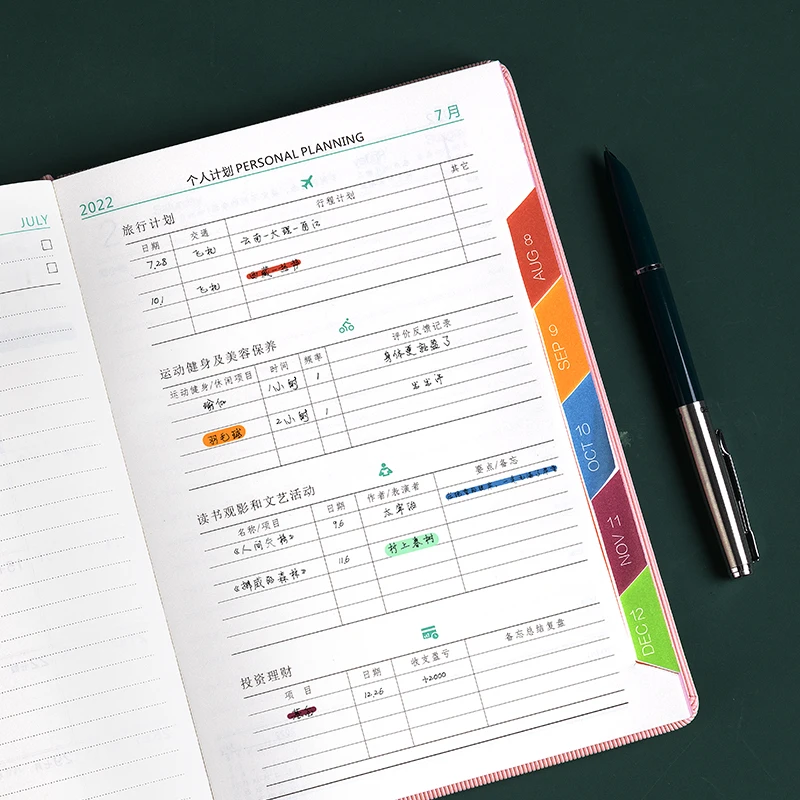 JULY
2022 个人计划 PERSONAL PLANNING 7月
旅行计划
日期 交通 行程计划 其它
7.28 飞机 云南-大理-丽江
10.1 飞机
运动健身及美容保养
运动健身/休闲项目 时间 频率 评价反馈记录
瑜伽 1小时 1 身体更轻盈了
羽毛球 2小时 1 出出汗
读书观影和文艺活动
名称/项目 日期 作者/表演者 要点/备忘
《人间失格》 9.6 太宰治
《挪威的森林》 11.6 村上春树
投资理财
项目 日期 收支盈亏 备忘总结复盘
12.26 +2000
AUG 8
SEP 9
OCT 10
NOV 11
DEC 12